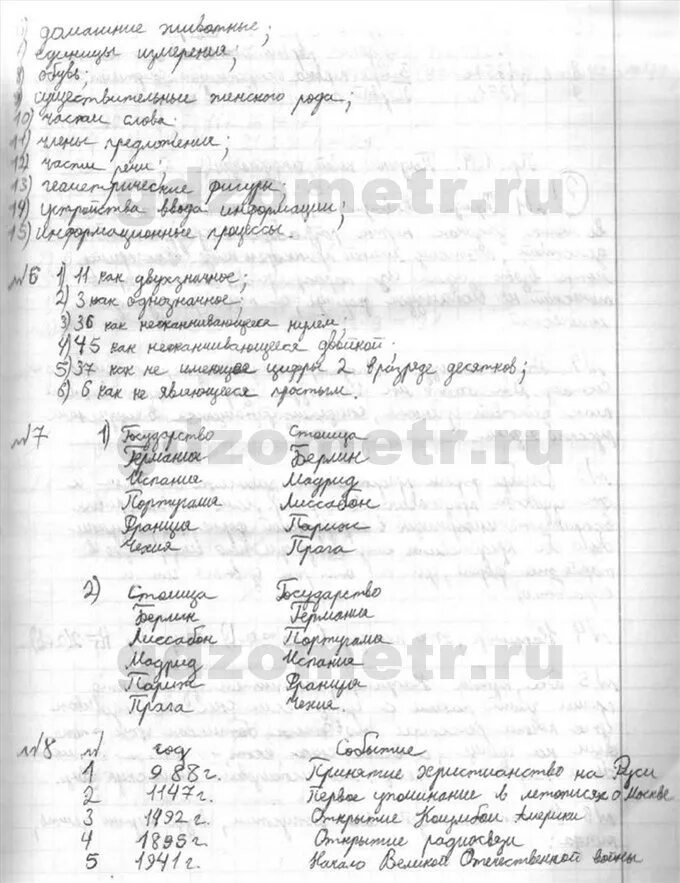 домашние животные;
7) единицы измерения;
8) обувь;
9) существительные женского рода;
10) части слова.
11) члены предложения;
12) части речи;
13) геометрические фигуры.
14) устройства ввода информации;
15) информационные процессы.
№6 1) 11 как двухзначное;
2) 3 как однозначное;
3) 36 как неоканчивающееся нулём;
4) 45 как неоканчивающееся двойкой.
5) 37 как не имеющее цифры 2 в разряде десятков;
6) 6 как не являющееся простым.
№7 1) Государство Столица
Германия Берлин
Испания Мадрид
Португалия Лиссабон
Франция Париж
Чехия Прага
2) Столица Государство
Берлин Германия
Лиссабон Португалия
Мадрид Испания
Париж Франция
Прага Чехия.
№8 № год Событие
1 988 г. Принятие христианство на Руси
2 1147 г. Первое упоминание в летописях о Москве
3 1492 г. Открытие Колумбом Америки
4 1895 г. Открытие радиосвязи
5 1941 г. Начало Великой Отечественной войны
gdzometr.ru
gdzometr.ru
gdzometr.ru